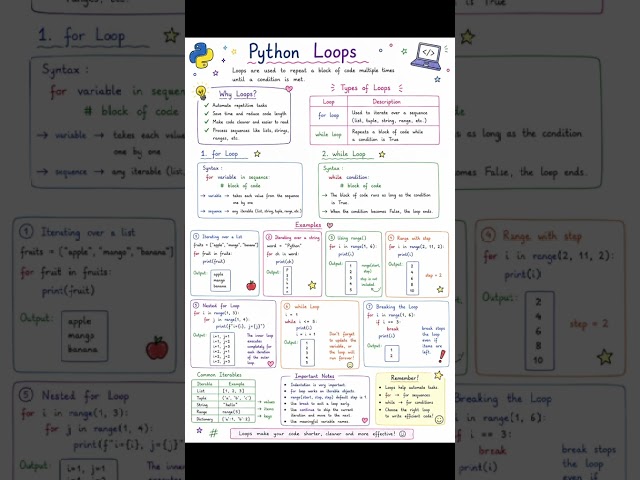 Python Loops
Loops are used to repeat a block of code multiple times
until a condition is met.
Why Loops?
Automate repetitive tasks
Save time and reduce code length
Make code cleaner and easier to read
Process sequences like lists, strings,
ranges, etc.
Types of Loops
Loop Description
for loop Used to iterate over a sequence
(list, tuple, string, range, etc.)
while loop Repeats a block of code while
a condition is True
1. for Loop
Syntax :
for variable in sequence:
# block of code
→ variable → takes each value from the sequence
one by one
→ sequence → any iterable (list, string, tuple, range, etc.)
2. while Loop
Syntax :
while condition:
# block of code
→ The block of code runs as long as the condition
is True.
→ When the condition becomes False, the loop ends.
Examples
1 Iterating over a list
fruits = ["apple", "mango", "banana"]
for fruit in fruits:
print(fruit)
Output:
apple
mango
banana
2 Iterating over a string
word = "Python"
for ch in word:
print(ch)
Output:
3 Using range()
for i in range(1, 6):
print(i)
Output:
1
2
3
4
5
4 Range with step
for i in range(2, 11, 2):
print(i)
Output:
2
4
6
8
10
step = 2
5 Nested for Loop
for i in range(1, 3):
for j in range(1, 4):
print(f"i={i}, j={j}")
Output:
i=1, j=1
i=1, j=2
i=1, j=3
i=2, j=1
i=2, j=2
i=2, j=3
The inner loop
executes
completely for
each iteration
of the outer
loop
6 while Loop
i = 1
while i <= 5:
print(i)
i += 1
Output:
1
2
3
4
5
Don't forget
to update the
variable, or
the loop will
run forever!
7 Breaking the Loop
for i in range(1, 6):
if i == 3:
break
print(i)
Output:
1
2
break stops
the loop
even if
items are
left.
Common Iterables
Iterable Example
List [1, 2, 3]
Tuple ('a', 'b', 'c')
String "hello"
Range range(5)
Dictionary {'a':1, 'b':2}
→ values
→ items
→ keys
Important Notes
Indentation is very important.
for loop works on iterable objects.
range(start, stop, step) default step is 1.
Use break to exit a loop early.
Use continue to skip the current
iteration and move to the next.
Use meaningful variable names.
Remember!
Loops help automate tasks
for → for sequences
while → for conditions
Choose the right loop
to write efficient code!
# Loops make your code shorter, cleaner and more effective!